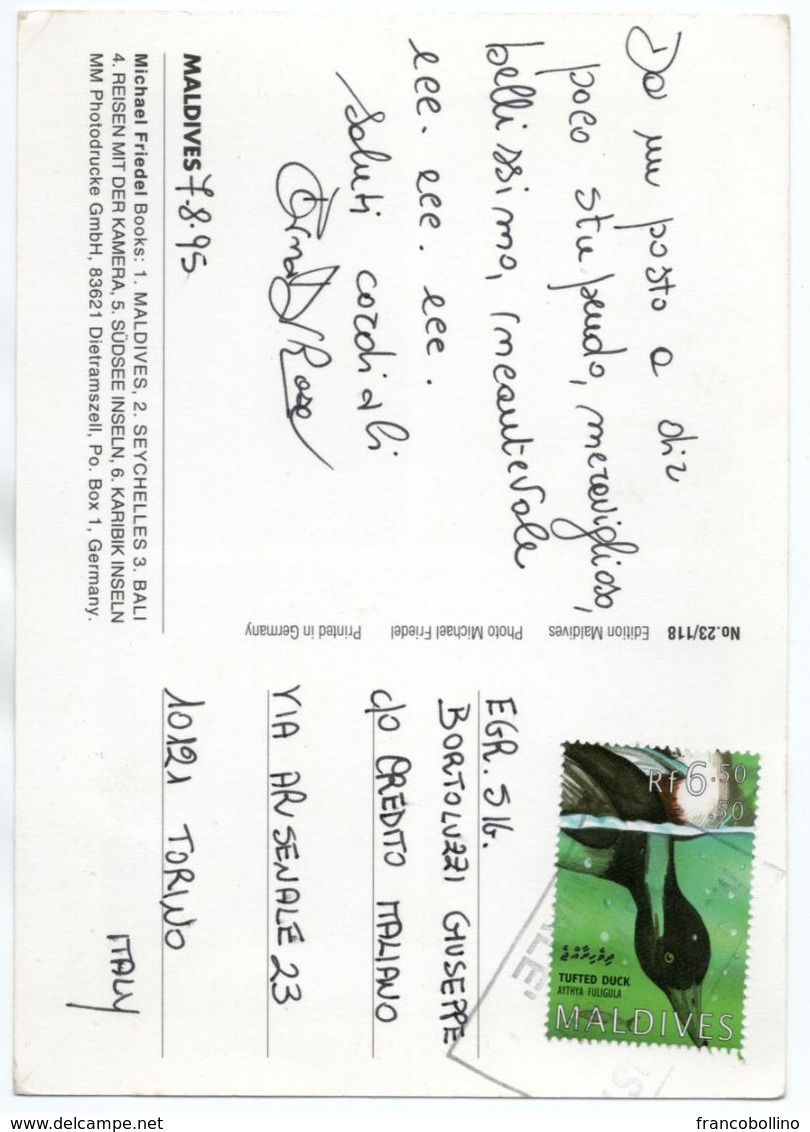 Da un posto a dir
poco stupendo, meraviglioso,
bellissimo, incantevole
ecc. ecc. ecc.
Saluti cordiali
Rosa
MALDIVES 7.8.95
Michael Friedel Books: 1. MALDIVES, 2. SEYCHELLES 3. BALI
4. REISEN MIT DER KAMERA, 5. SÜDSEE INSELN, 6. KARIBIK INSELN
MM Photodrucke GmbH, 83621 Dietramszell, Po. Box 1, Germany.
No.23/118 Edition Maldives Photo Michael Friedel Printed in Germany
EGR. SIG.
BORTOLUZZI GIUSEPPE
c/o CREDITO ITALIANO
VIA ARSENALE 23
10121 TORINO
ITALY
Rf 6.50
.50
TUFTED DUCK
AYTHYA FULIGULA
MALDIVES
www.delcampe.net
francobollino